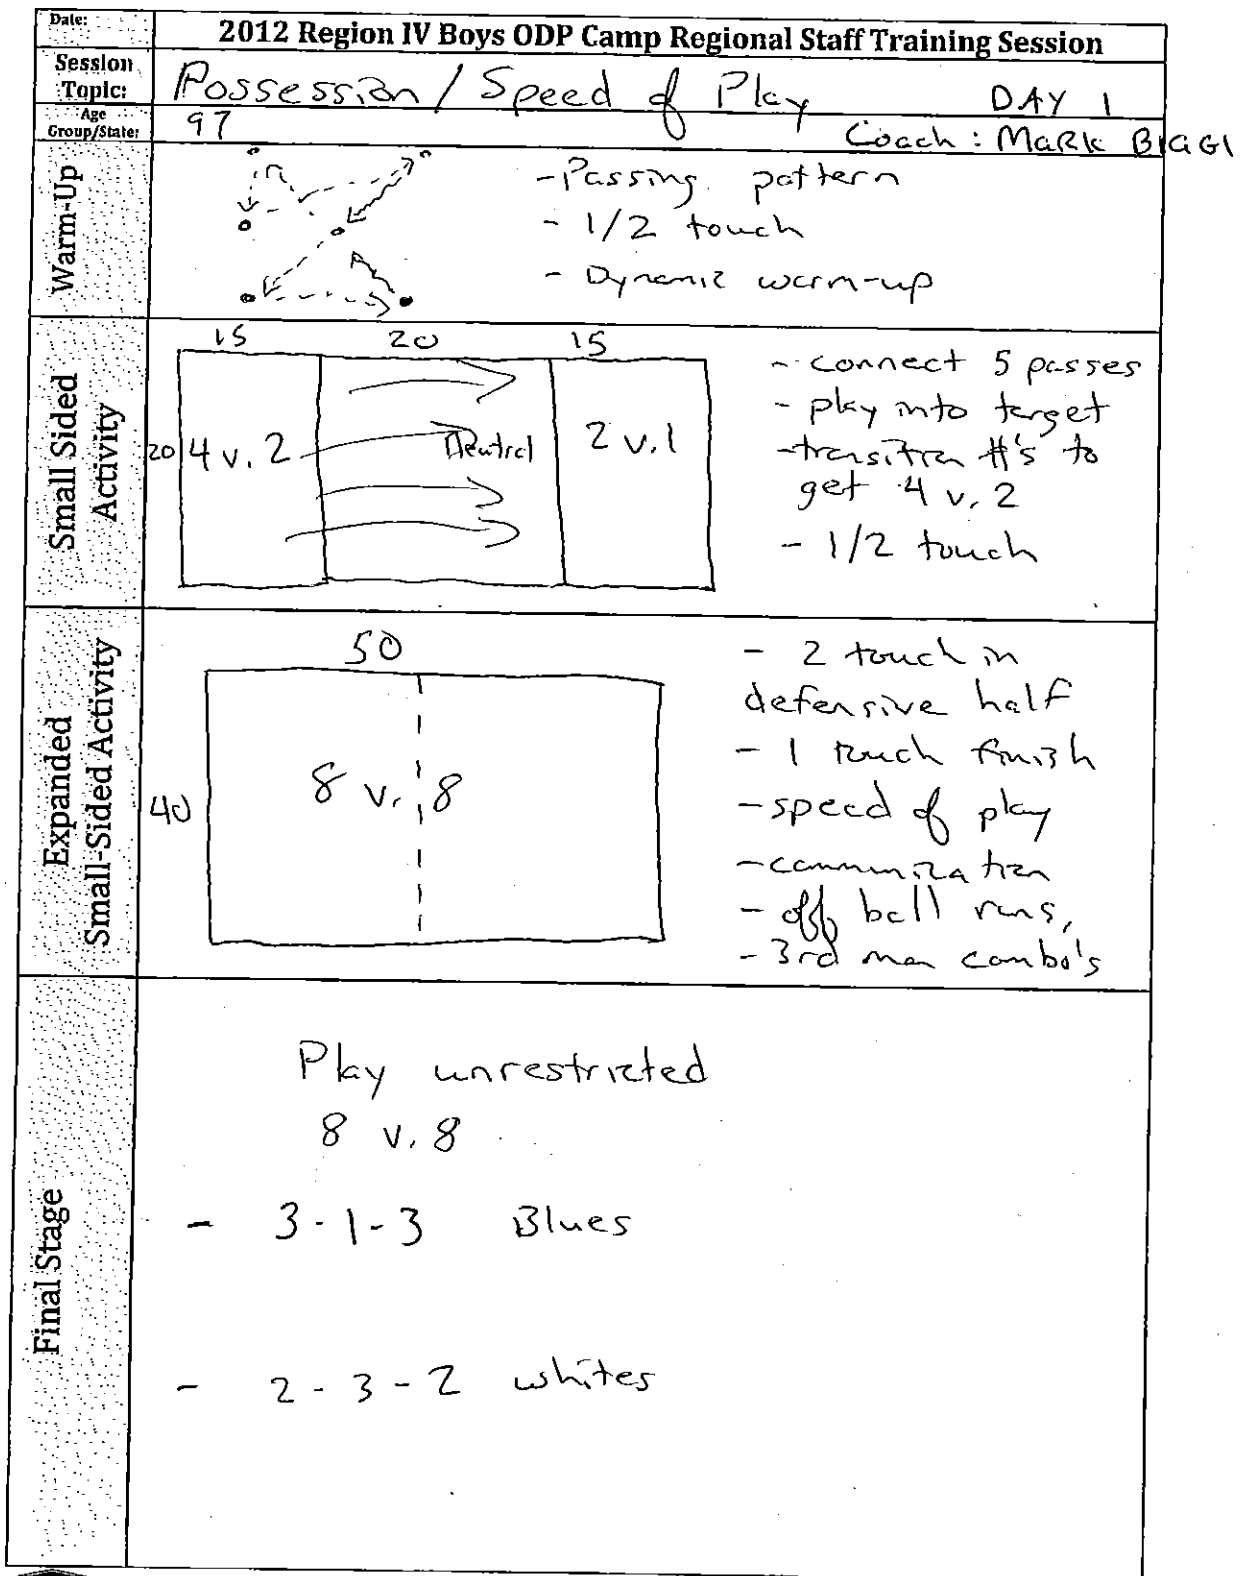 Date:
2012 Region IV Boys ODP Camp Regional Staff Training Session
Session Topic:
Possession / Speed of Play DAY 1
Age Group/State:
97
Coach: MARK BIAGI
Warm-Up
- Passing pattern
- 1/2 touch
- Dynamic warm-up
Small Sided Activity
15 20 15
20 4 v. 2 Neutral 2 v. 1
- connect 5 passes
- play into target
- transition #'s to
get 4 v. 2
- 1/2 touch
Expanded Small-Sided Activity
50
40
8 v. 8
- 2 touch in
defensive half
- 1 touch finish
- speed of play
- communication
- off ball runs,
- 3rd man combo's
Final Stage
Play unrestricted
8 v. 8
- 3-1-3 Blues
- 2-3-2 whites